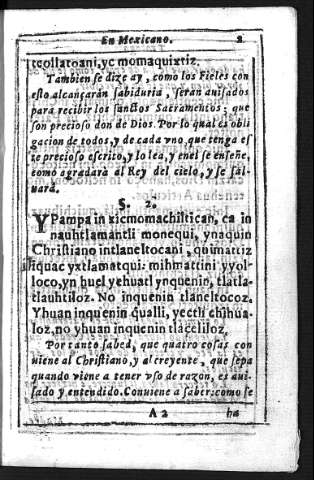 En Mexicano. 2
tteollatoani, yc momaquixtiz.
Tambien se dize ay, como los Fieles con
esto alcançarán sabiduria, seran auisados
para recibir los sanctos Sacramentos: que
son precioso don de Dios. Por lo qual es obli
gacion de todos, y de cada vno que tenga es
te precioso escrito, y lo lea, y en el se enseñe,
como agradará al Rey del cielo, y se sal-
uará.
§. 2.
YPampa in xicmomachiltican, ca in
nauhtlamantli monequi, ynaquin
Christiano intlaneltocani, quimattiz
iiquac yxtlamatqui: mihmattini yyol-
loco, yn huel yehuatl ynquenin, tlatla-
tlauhtiloz. No inquenin tlaneltocoz.
Yhuan inquenin qualli, yectli chihua-
loz, no yhuan inquenin tlaceliloz.
Por tanto sabed, que quatro cosas con
uiene al Christiano, y al creyente, que sepa
quando viene a tener vso de razon, es aui-
sado y entendido. Conuiene a saber: como se
A 2 ha